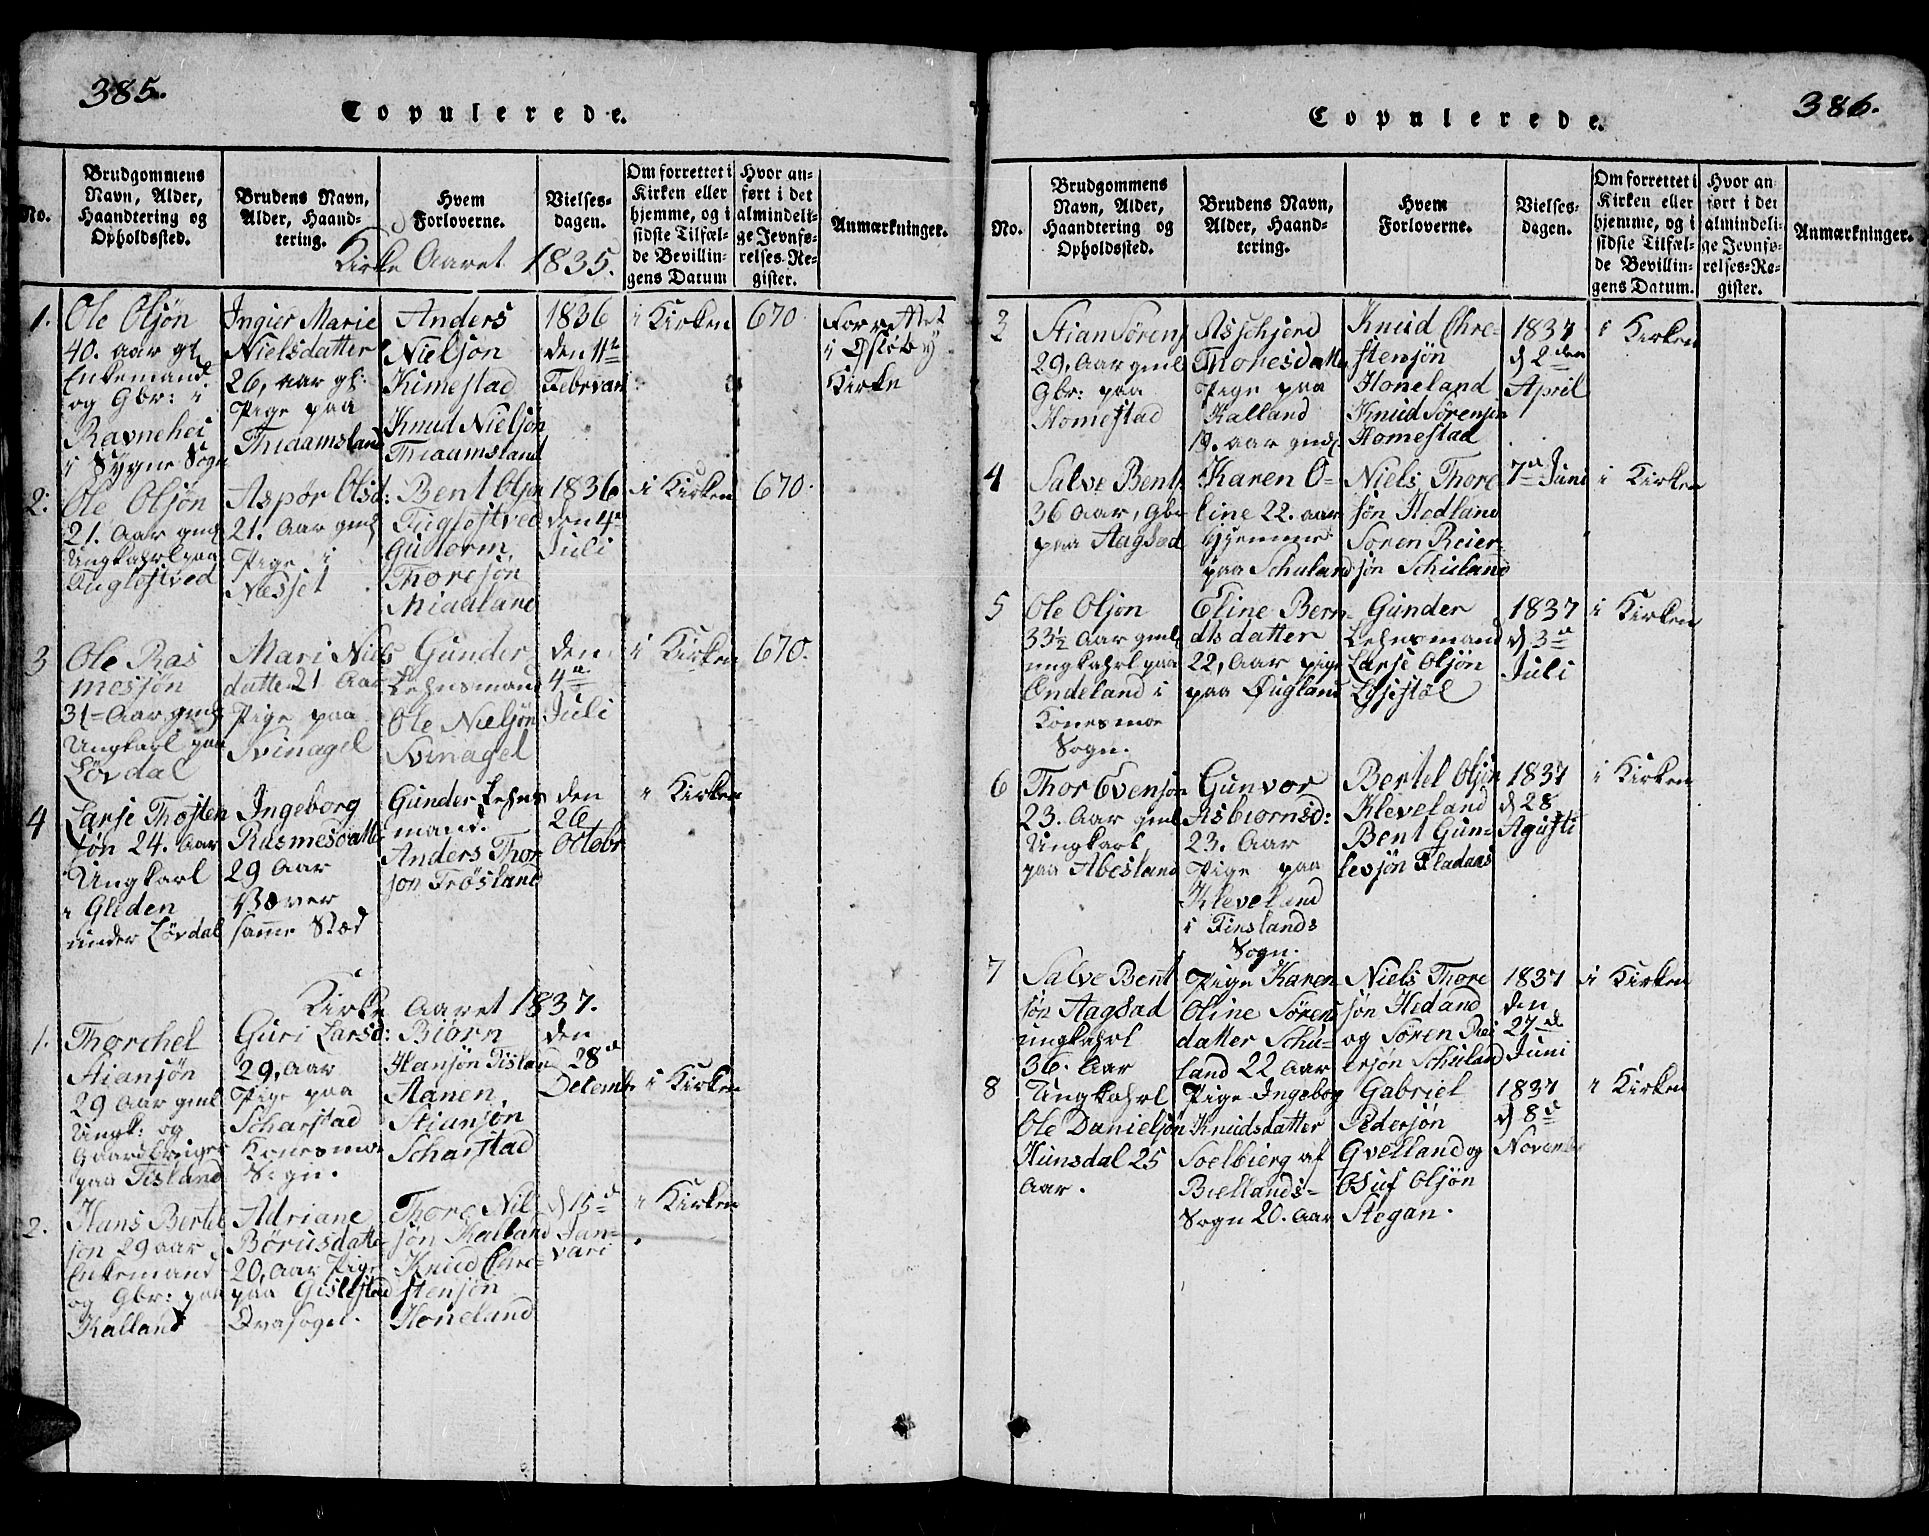 385.
Copulerede.
No.
Brudgommens
Navn, Alder,
Haandtering og
Opholdssted.
Brudens Navn,
Alder, Haand-
tering.
Hvem
Forloverne.
Vielses-
dagen.
Om forrettet i
Kirken eller
hjemme, og i
sidste Tilfæl-
de Bevillin-
gens Datum
Hvor an-
ført i det
almindeli-
ge Jevnfø-
relses-Re-
gister.
Anmærkninger.
Kirke Aaret 1835.
1.
Ole Olsøn
40. aar gl.
Enkemand
og Gbr: i
Ravnehei
i Øygne Sogn
Ingier Marie
Nielsdatter
26, aar gl:
Pige paa
Thiaamsland
Anders
Nielsøn
Kimestad
Knud Nielsøn
Thiaamsland
1836
den 11te
Februari
i Kirken
670
Forrettet
i
Kirke
2:
Ole Olsøn
21. Aar gml
Ungkahrl paa
Fuglestved
Aspør Olsd:
21. Aar gml
Pige i
Nesset
Bent Olsøn
Fuglestved
Gutorm
Thoresøn
Miaaland
1836
den 4de
Juli
i Kirken
670.
3
Ole Ras
mesøn
31 Aar gml
Ungkarl paa
Løvdal
Mari Niels
datte 21 Aar
Pige paa
Svinagel
Gunder
Lehnsmand
Ole Nielsøn
Svinagel
den
4de
Juli
i Kirken
670.
4
Larse Thosten
søn 24. Aar
Ungkarl
i Gliden
under Løvdal
Ingeborg
Rasmesdatter
29 Aar
Væver
samme Stæd
Gunder Lehns
mand.
Anders Thor
søn Trøsland
den
26
Octobr
i Kirken
Kirke Aaret 1837.
1.
Thorchel
Stiansøn
29 Aar gml
Ungk: og
Gaardbruger
paa Tisland
Guri Larsd:
29, Aar
Pige paa
Scharstad
Konesmoe
Sogn.
Biørn
Hansøn Tisland
Aanen
Stiansøn
Scharstad
den
28de
Decembr
i Kirken
2.
Hans Bertel
søn 29 aar
Enkemand
og Gbr: paa
Kalland
Adriane
Børusdatter
20, Aar Pige
paa Gislestad
Øvasogel.
Thore Nil
søn Kalland
Knud Chre-
stensøn
Honeland
d 15de
Jan-
vari
i Kirken
386.
Copulerede.
No.
Brudgommens
Navn, Alder,
Haandtering og
Opholdssted.
Brudens Navn,
Alder, Haand-
tering.
Hvem
Forloverne.
Vielses-
dagen.
Om forrettet i
Kirken eller
hjemme, og i
sidste Tilfæl-
de Bevillin-
gens Datum.
Hvor an
ført i det
almindeli-
ge Jevnfø-
relses-Re-
gister.
Anmærkninger.
3
Stian Sørens
29, Aar gml
Gbr: paa
Homestad
Asschjerd
Thoresdatte
Pige paa
Kalland
19. aar gml
Knud Chre-
stensøn
Honeland
Knud Sørensøn
Homestad
1837
d 2den
April
i Kirken
4
Salve Bents
36 Aar, Gbr
paa Aagsad
Karen O-
line 22. aar
Hjemme
paa Schuland
Niels Thore
søn Hodland
Soren Reier-
søn Schuland
7de Juni
i Kirken
5
Ole Olsøn
33½ Aar gml
ungkahrl paa
Øndeland i
Konesmoe
Sogn.
Eline Bern-
dtsdatter
22, Aar pige
paa Øugland
Gunder
Lehnsmand
Larse Olsøn
Løsestøl
1837
d 3de
Juli
i Kirken
6
Thor Evensøn
23. Aar gml
Ungkarl
paa Abesland
Gunvor
Asbiornsd:
23. Aar
Pige paa
Kleveland
i Finslands
Sogn.
Bertel Olsøn
Kleveland
Bent Gun-
levsøn Fladaas
1837
d 28
Agusti
i Kirken
7
Salve Bent
søn Aagsad
ungkahrl
36. Aar
Pige Karen
Oline Sørens
datter Schu-
land 22 Aar
Niels Thore
søn Hidand
og Søren Rei
ersøn Schuland
1837
den
27de
Juni
i Kirken
8
Ungkahrl
Ole Danielsøn
Hunsdal 25
Aar.
Pige Ingeborg
Knudsdatter
Soelbierg af
Biellands-
Sogn 20. Aar
Gabriel
Pedersøn
Gvelland og
Osuf Olsøn
Stegan.
1837
d 8de
November
i Kirken